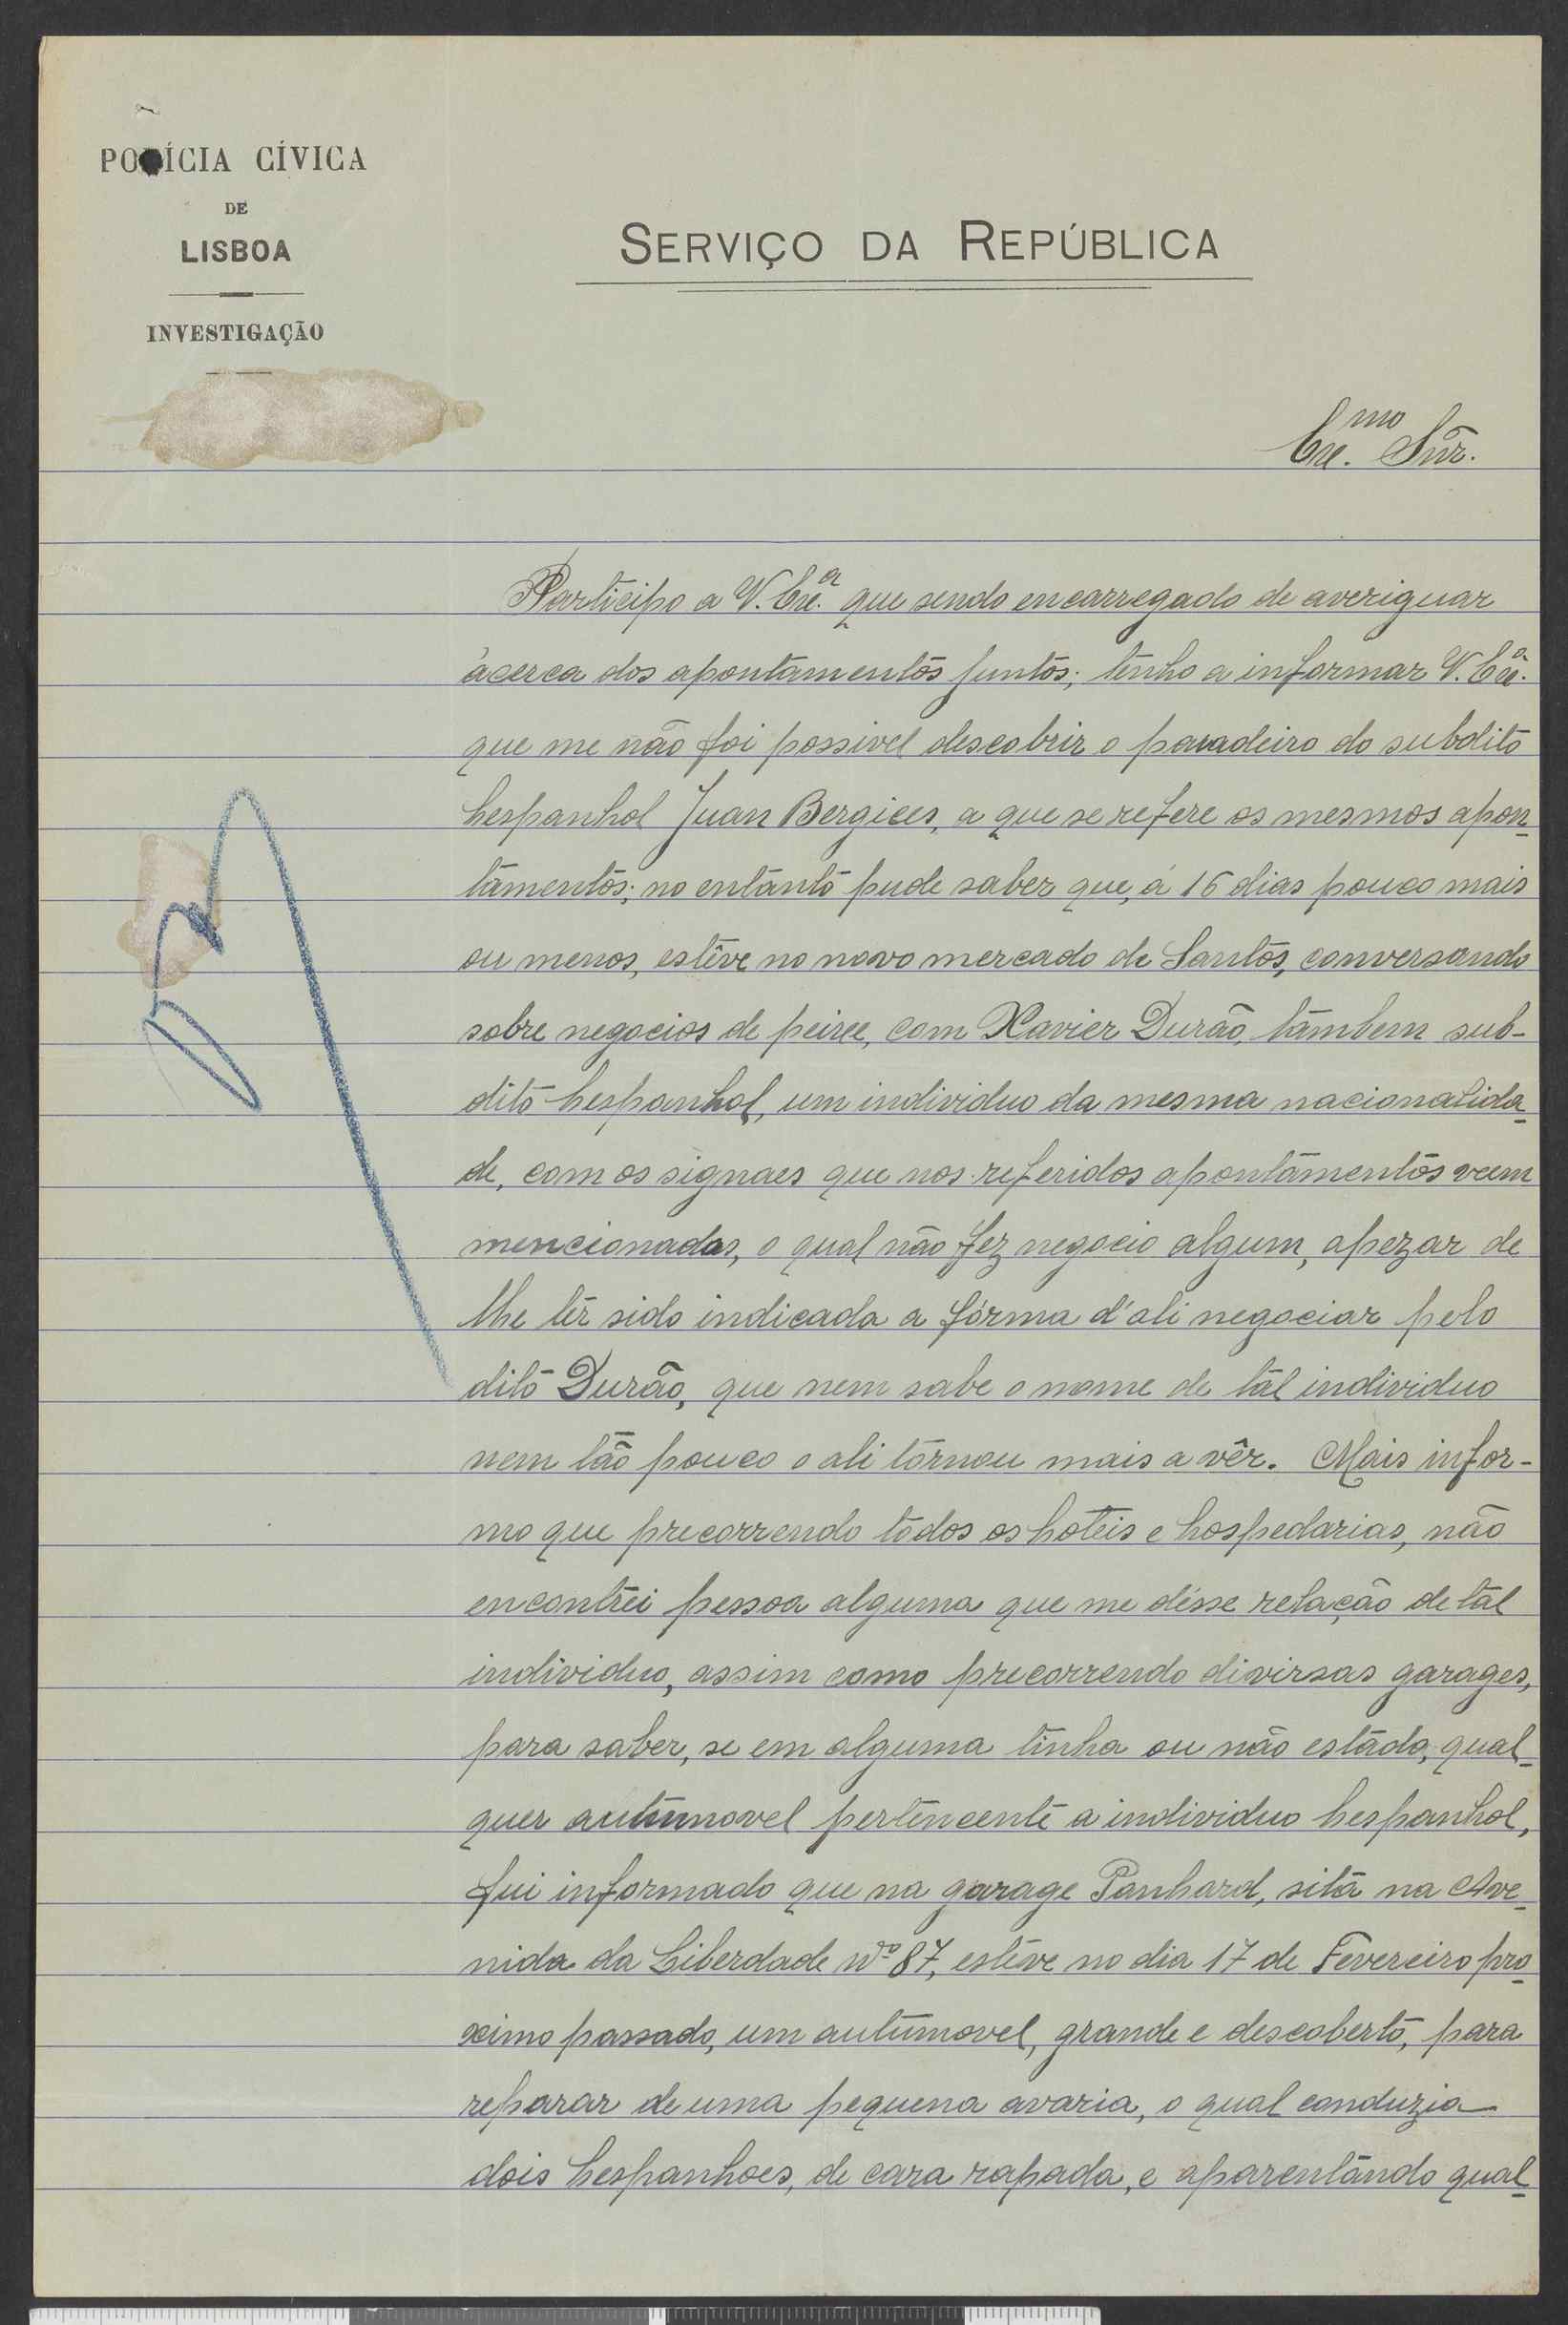 POLÍCIA CÍVICA
DE
LISBOA
INVESTIGAÇÃO
SERVIÇO DA REPÚBLICA
Exe.mo Snr.
Participo a V. Exe.a que sendo encarregado de averiguar
àcerca dos apontamentos juntos; tenho a informar V. Exe.a
que me não foi possivel descobrir o paradeiro do subdito
hespanhol Juan Bergiees, a que se refere os mesmos apon-
tamentos; no entanto pude saber que, á 16 dias pouco mais
ou menos, estêve no novo mercado de Santos, conversando
sobre negocios de peixe, com Xavier Durão, tambem sub-
dito hespanhol, um individuo da mesma nacionalida-
de, com os signaes que nos referidos apontamentos veem
mencionados, o qual não fez negocio algum, apezar de
lhe têr sido indicada a fórma d'ali negociar pelo
dito Durão, que nem sabe o nome de tal individuo
nem tão pouco o ali tornou mais a vêr. Mais infor-
mo que precorrendo todos os hoteis e hospedarias, não
encontrei pessoa alguma que me désse relação de tal
individuo, assim como precorrendo divirsas garages,
para saber, se em alguma tinha ou não estado, qual-
quer autumovel pertencente a individuo hespanhol,
fui informado que na garage Panhard, sita na Ave-
nida da Liberdade Nº 87, estêve no dia 17 de Fevereiro pro-
ximo passado, um autumovel, grande e descoberto, para
reparar de uma pequena avaria, o qual conduzia
dois hespanhoes, de cara rapada, e aparentando qual-